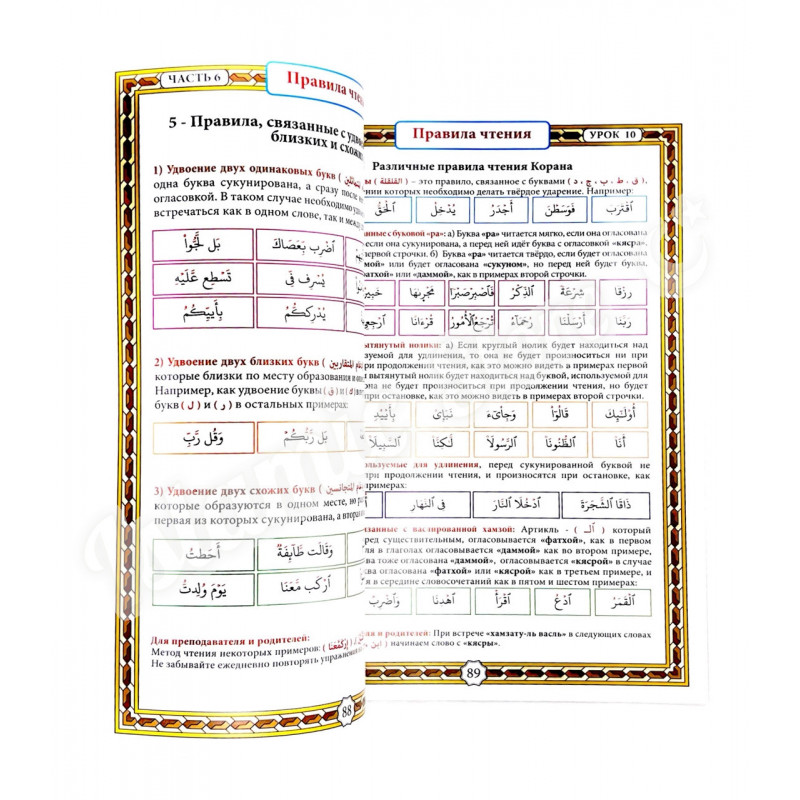 ЧАСТЬ 6
Правила чтен
5 - Правила, связанные с удво
близких и схожи
1) Удвоение двух одинаковых букв (
одна буква сукунирована, а сразу после н
огласовкой. В таком случае необходимо уд
встречаться как в одном слове, так и меж
بَل لَّجُّواْ اَضْرِب بِّعَصَاكَ
تَسْطِع عَّلَيْهِ يُسْرِف فِّى
بِأَييِّكُمُ يُدْرِككُّمُ
2) Удвоение двух близких букв (
которые близки по месту образования и
Например, как удвоение буквы ( ق ) и ( ك )
букв ( ل ) и ( ر ) в остальных примерах:
وَقُل رَّبِّ بَل رَّبُّكُمْ
3) Удвоение двух схожих букв (
которые образуются в одном месте, но
первая из которых сукунирована, а вторая
أَحَطتُ وَقَالَت طَّآئِفَةٌ
يَوْمَ وُلِدتُّ اَرْكَب مَّعَنَا
Для преподавателя и родителей:
Метод чтения некоторых примеров:
Не забывайте ежедневно повторять упражнения
88
Правила чтения
УРОК 10
Различные правила чтения Корана
( القلقلة ) - это правило, связанное с буквами ( ق ، ط ، ب ، ج ، د ),
ении которых необходимо делать твёрдое ударение. Например:
اَلْحَقُّ يُدْخِلُ أَجْدَرُ فَوَسَطْنَ اَقْتَرَبَ
анные с буковой «ра»: а) Буква «ра» читается мягко, если она огласована
если она сукунирована, а перед ней идёт буква с огласовкой «кясра»,
первой строчки. б) Буква «ра» читается твёрдо, если будет огласована
ммой» или будет огласована «сукуном», но перед ней будет буква,
фатхой» или «даммой», как в примерах второй строчки.
خَبِيرٌ مَجْر۪ىٰهَا فَاَصْبِرْ صَبْرًا اَلذِّكْرَ شِرْعَةً رِزْقًا
اَرْجِعِ قُرْءَانًا تُرْجَعُ اَلْأُمُورُ رُحَمَآءُ أَرْسَلْنَا رَبَّنَا
вытянутый нолики: а) Если круглый нолик будет находиться над
зуемой для удлинения, то она не будет произноситься ни при
при продолжении чтения, как это можно видеть в примерах первой
и вытянутый нолик будет находиться над буквой, используемой для
она не будет произноситься при продолжении чтения, но будет
при остановке, как это можно видеть в примерах второй строчки.
بِأَيْيْدٍ وَجِاْىٓءَ نَبَإِىْ قَالُواْ أُوْلَٰٓئِكَ
اَلسَّبِيلَا لَّٰكِنَّا اَلرَّسُولَا اَلظُّنُونَا أَنَا
ользуемые для удлинения, перед сукунированной буквой не
при продолжении чтения, и произносятся при остановке, как
примерах:
فِى اَلنَّهَارِ اَدْخُلَا اَلنَّارَ ذَاقَا اَلشَّجَرَةَ
язанные с васлированной хамзой: Артикль - ( اَلـ ) который
ред существительным, огласовывается «фатхой», как в первом
ля в глаголах огласовывается «даммой» как во втором примере,
ква тоже огласована «даммой», огласовывается «кясрой» в случае
ква огласована «фатхой» или «кясрой» как в третьем примере, и
я в середине словосочетаний как в пятом и шестом примерах:
وَاَضْرِبْ اَهْدِنَا اَقْرَأْ اَدْعُ اَلْقَمَرُ
ля и родителей: При встрече «хамзату-ль васль» в следующих словах
начинаем слово с «кясры».
89